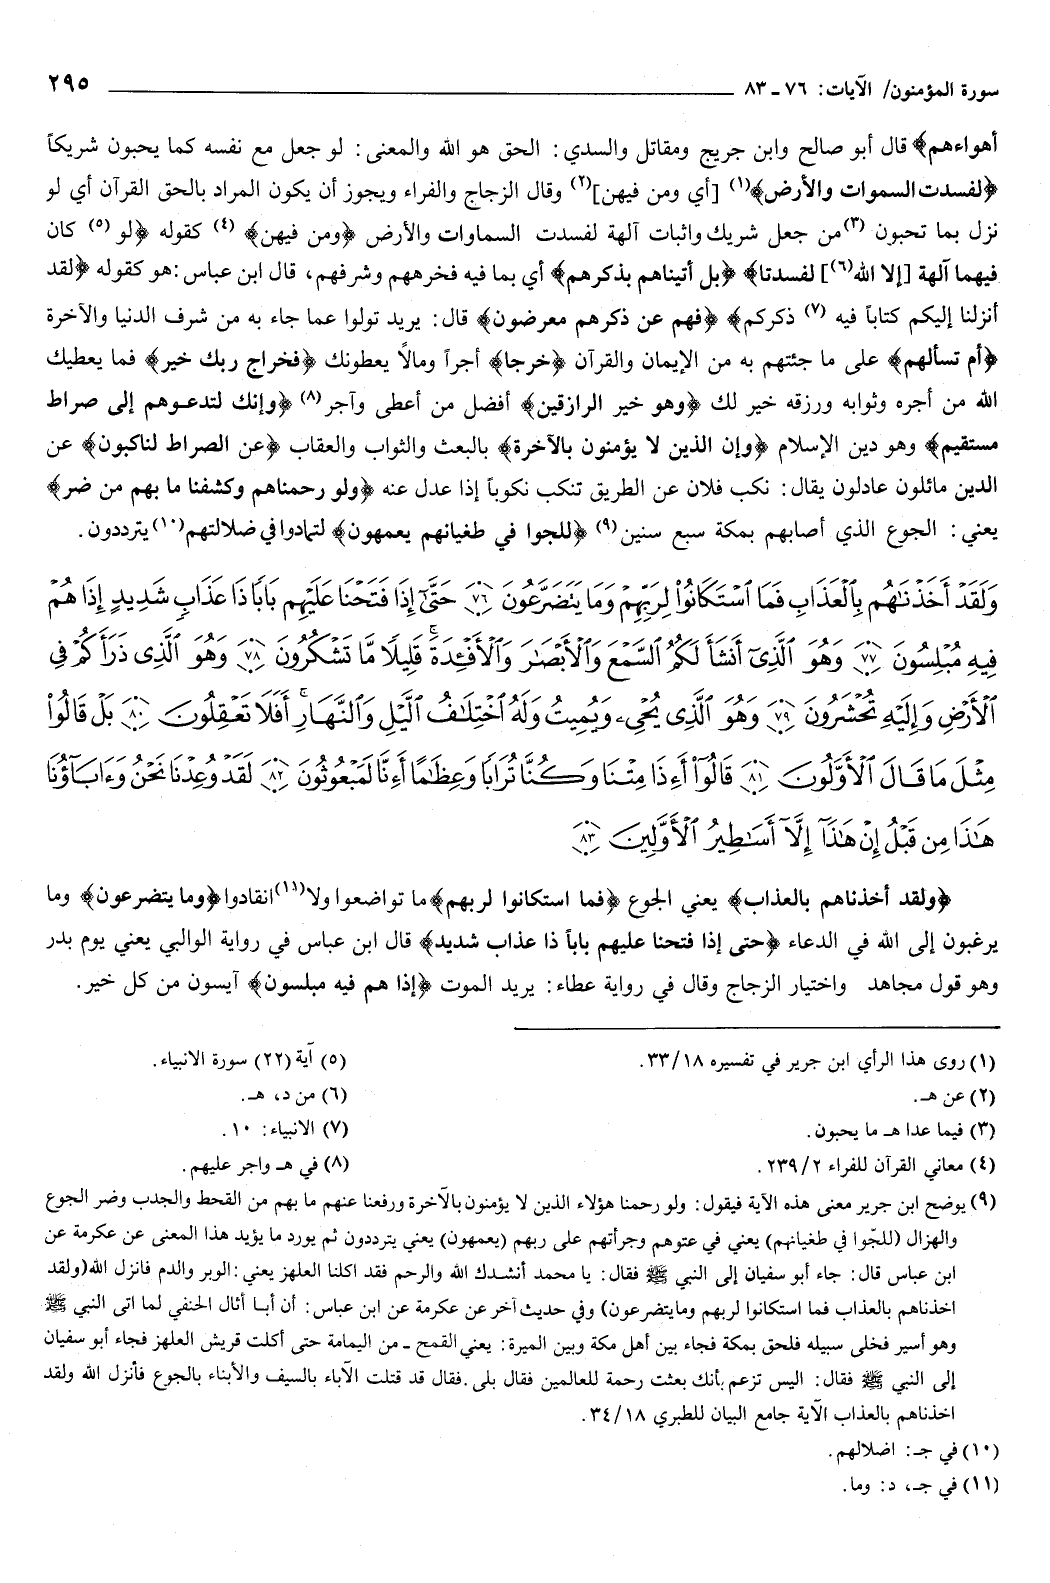 سورة المؤمنون/ الآيات: ٧٦ ـ ٨٣ ٢٩٥
أهواءهم﴾ قال أبو صالح وابن جريج ومقاتل والسدي: الحق هو الله والمعنى: لو جعل مع نفسه كما يحبون شريكاً
﴿لفسدت السموات والأرض﴾(١) [أي ومن فيهن](٢) وقال الزجاج والفراء ويجوز أن يكون المراد بالحق القرآن أي لو
نزل بما تحبون (٣)من جعل شريك واثبات آلهة لفسدت السماوات والأرض ﴿ومن فيهن﴾ (٤) كقوله ﴿لو (٥) كان
فيهما آلهة [إلا الله(٦)] لفسدتا﴾ ﴿بل أتيناهم بذكرهم﴾ أي بما فيه فخرهم وشرفهم، قال ابن عباس: هو كقوله ﴿لقد
أنزلنا إليكم كتاباً فيه (٧) ذكركم﴾ ﴿فهم عن ذكرهم معرضون﴾ قال: يريد تولوا عما جاء به من شرف الدنيا والآخرة
﴿أم تسألهم﴾ على ما جئتهم به من الإيمان والقرآن ﴿خرجا﴾ أجراً ومالًا يعطونك ﴿فخراج ربك خير﴾ فما يعطيك
الله من أجره وثوابه ورزقه خير لك ﴿وهو خير الرازقين﴾ أفضل من أعطى وآجر(٨) ﴿وإنك لتدعوهم إلى صراط
مستقيم﴾ وهو دين الإسلام ﴿وإن الذين لا يؤمنون بالآخرة﴾ بالبعث والثواب والعقاب ﴿عن الصراط لناكبون﴾ عن
الدين مائلون عادلون يقال: نكب فلان عن الطريق تنكب نكوباً إذا عدل عنه ﴿ولو رحمناهم وكشفنا ما بهم من ضر﴾
يعني: الجوع الذي أصابهم بمكة سبع سنين(٩) ﴿للجوا في طغيانهم يعمهون﴾ لتمادوا في ضلالتهم(١٠) يترددون.
وَلَقَدْ أَخَذْنَٰهُم بِالْعَذَابِ فَمَا اسْتَكَانُوا لِرَبِّهِمْ وَمَا يَتَضَرَّعُونَ ٧٦ حَتَّىٰ إِذَا فَتَحْنَا عَلَيْهِم بَابًا ذَا عَذَابٍ شَدِيدٍ إِذَا هُمْ
فِيهِ مُبْلِسُونَ ٧٧ وَهُوَ الَّذِي أَنشَأَ لَكُمُ السَّمْعَ وَالْأَبْصَٰرَ وَالْأَفْئِدَةَ ۚ قَلِيلًا مَّا تَشْكُرُونَ ٧٨ وَهُوَ الَّذِي ذَرَأَكُمْ فِي
الْأَرْضِ وَإِلَيْهِ تُحْشَرُونَ ٧٩ وَهُوَ الَّذِي يُحْيِۦ وَيُمِيتُ وَلَهُ اخْتِلَٰفُ الَّيْلِ وَالنَّهَارِ ۚ أَفَلَا تَعْقِلُونَ ٨٠ بَلْ قَالُوا
مِثْلَ مَا قَالَ الْأَوَّلُونَ ٨١ قَالُوا أَءِذَا مِتْنَا وَكُنَّا تُرَابًا وَعِظَٰمًا أَءِنَّا لَمَبْعُوثُونَ ٨٢ لَقَدْ وُعِدْنَا نَحْنُ وَءَابَآؤُنَا
هَٰذَا مِن قَبْلُ إِنْ هَٰذَآ إِلَّآ أَسَٰطِيرُ الْأَوَّلِينَ ٨٣
﴿ولقد أخذناهم بالعذاب﴾ يعني الجوع ﴿فما استكانوا لربهم﴾ما تواضعوا ولا(١١)انقادوا﴿وما يتضرعون﴾ وما
يرغبون إلى الله في الدعاء ﴿حتى إذا فتحنا عليهم باباً ذا عذاب شديد﴾ قال ابن عباس في رواية الوالبي يعني يوم بدر
وهو قول مجاهد واختيار الزجاج وقال في رواية عطاء: يريد الموت ﴿إذا هم فيه مبلسون﴾ آيسون من كل خير.
(١) روى هذا الرأي ابن جرير في تفسيره ٣٣/١٨.
(٢) عن هـ.
(٣) فيما عدا هـ ما يحبون.
(٤) معاني القرآن للفراء ٢٣٩/٢.
(٥) آية (٢٢) سورة الانبياء.
(٦) من د، هـ.
(٧) الانبياء: ١٠.
(٨) في هـ واجر عليهم.
(٩) يوضح ابن جرير معنى هذه الآية فيقول: ولو رحمنا هؤلاء الذين لا يؤمنون بالآخرة ورفعنا عنهم ما بهم من القحط والجدب وضر الجوع
والهزال (للجّوا في طغيانهم) يعني في عتوهم وجرأتهم على ربهم (يعمهون) يعني يترددون ثم يورد ما يؤيد هذا المعنى عن عكرمة عن
ابن عباس قال: جاء أبو سفيان إلى النبي ﷺ فقال: يا محمد أنشدك الله والرحم فقد اكلنا العلهز يعني: الوبر والدم فانزل الله(ولقد
اخذناهم بالعذاب فما استكانوا لربهم ومايتضرعون) وفي حديث آخر عن عكرمة عن ابن عباس: أن أبا أثال الحنفي لما اتى النبي ﷺ
وهو أسير فخلى سبيله فلحق بمكة فجاء بين أهل مكة وبين الميرة: يعني القمح ـ من اليمامة حتى أكلت قريش العلهز فجاء أبو سفيان
إلى النبي ﷺ فقال: اليس تزعم بأنك بعثت رحمة للعالمين فقال بلى. فقال قد قتلت الآباء بالسيف والأبناء بالجوع فأنزل الله ولقد
اخذناهم بالعذاب الآية جامع البيان للطبري ٣٤/١٨.
(١٠) في جـ: اضلالهم.
(١١) في جـ، د: وما.